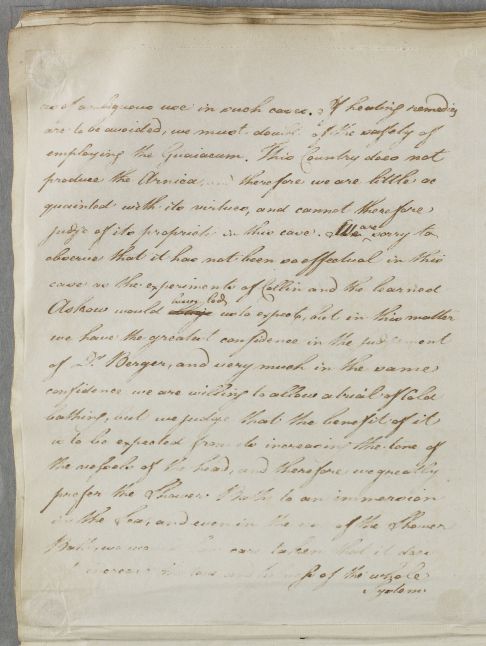 are of ambiguous use in such cases. If heating remedies
are to be avoided, we must doubt of the safety of
employing the Guaiacum. This Country does not
produce the Arnica, and therefore we are little ac
quainted with its virtues, and cannot therefore
judge of its propriety in this case. We are sorry to
observe that it has not been so effectual in this
case as the experiments of Collin and the learned
Askow would have led us to expect, but in this matter
we have the greatest confidence in the judgement
of Dr Berger, and very much in the same
confidence we are willing to allow a trial of Cold
bathing, but we judge that the benefit of it
is to be expected from its increasing the tone of
the vessels of the head, and therefore we greatly
prefer the Shower Bath to an immersion
in the Sea, and even in the use of the Shower
Bath, we would have care taken that it does
increase the tone and of the whole
System